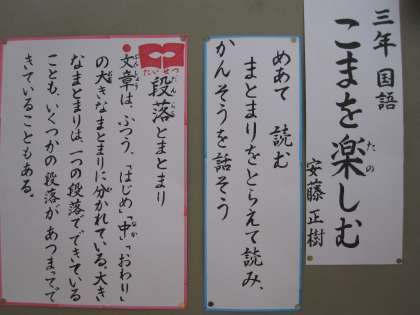 三年 国語
こまを楽しむ
たの
安藤 正樹
めあて 読む
まとまりをとらえて読み、
かんそうを話そう
たいせつ
段落とまとまり
だんらく
文章は、ふつう、「はじめ」「中」「おわり」
ぶんしょう
なか
の大きなまとまりに分かれている。大き
なまとまりは、一つの段落でできている
ことも、いくつかの段落があつまってで
きていることもある。